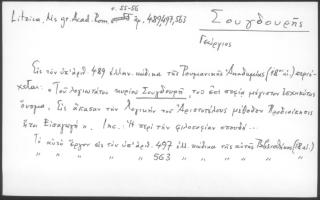 σ. 55-56
Litzica, Ms gr. Acad. Rom. ἀρ. 489, 497, 563
Σουγδουρῆς
Γεώργιος
Εἰς τὸν ὑπ' ἀριθ. 489 ἑλλην. κώδικα τῆς Ρουμανικῆς Ἀκαδημίας (18ου αἰ.) περιέ-
χεται: «Τοῦ λογιωτάτου κυρίου Σουγδουρῆ, τοῦ ἐπὶ σοφίᾳ μέγιστον ἐσχηκότος
ὄνομα. Εἰς ἅπασαν τὴν λογικὴν τοῦ Ἀριστοτέλους μέθοδον Προδιοίκησις
ἤτοι Εἰσαγωγή». Inc.: Ἡ περὶ τὴν φιλοσοφίαν σπουδή...
Τὸ αὐτὸ ἔργον εἰς τὸν ὑπ' ἀριθ. 497 ἑλλ. κώδικα τῆς αὐτῆς Βιβλιοθήκης (18 αἰ.)
" " " " " 563 " " " " "